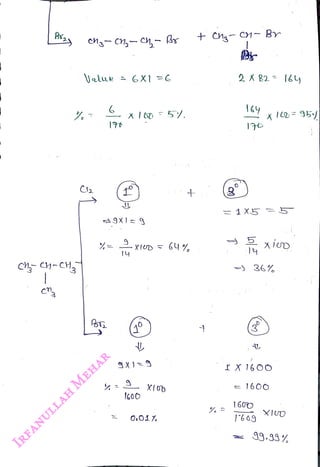 Br₂
CH₃ – CH₂ – CH₂ – Br + CH₃ – CH – Br
Value = 6 X 1 = 6
2 X 82 = 164
% = 6/170 X 100 = 5%.
164/170 X 100 = 95%
Cl₂ 1° + 3°
⇒ 9 X 1 = 9
= 1 X 5 = 5
% = 9/14 X 100 = 64%
→ 5/14 X 100
→ 36%
CH₃ – CH – CH₃
CH₃
Br₂ 1° + 3°
9 X 1 = 9
1 X 1600
= 1600
% = 9/1600 X 100
= 0.01%
% = 1600/1609 X 100
= 99.99%
IRFANULLAH MEHAR